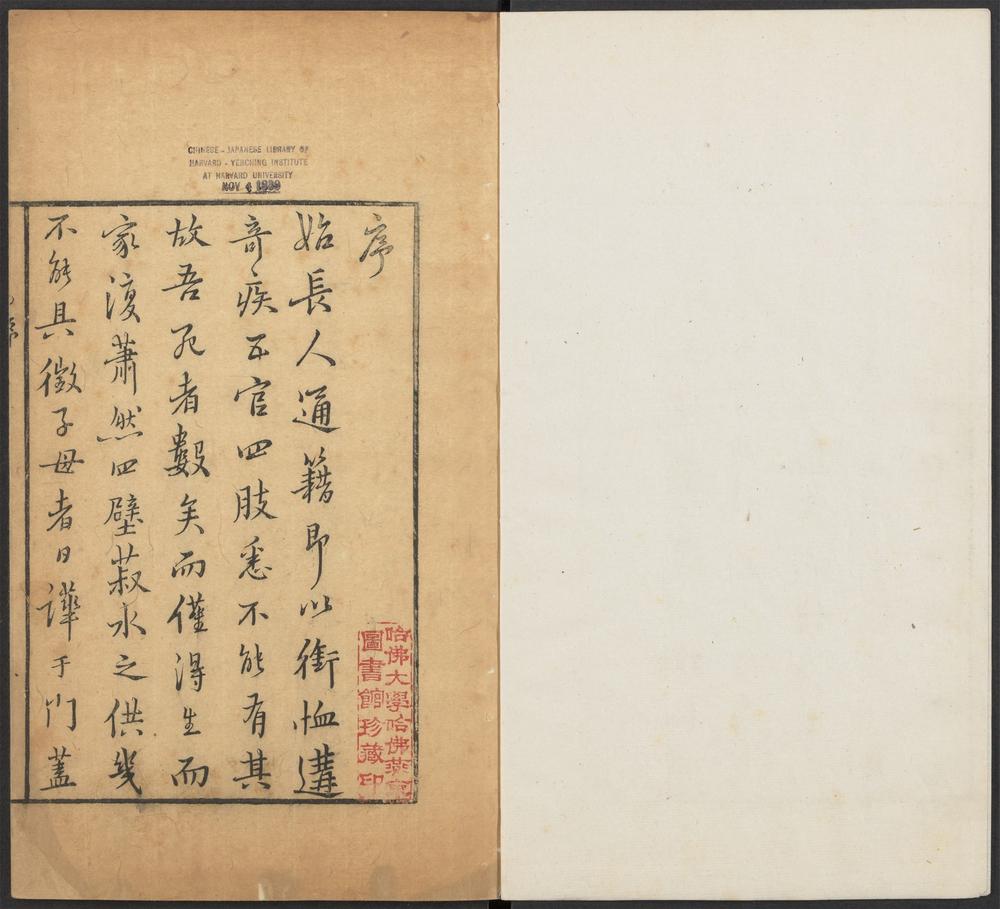 CHINESE - JAPANESE LIBRARY OF
HARVARD - YENCHING INSTITUTE
AT HARVARD UNIVERSITY
NOV 4 1939
序
始長人通籍即以銜恤遘
奇疾五官四肢悉不能有其
故吾死者數矣而僅得生而
家復蕭然四壁菽水之供幾
不能具徵子母者日譁于門蓋
哈佛大學哈佛燕京
圖書館珍藏印
序